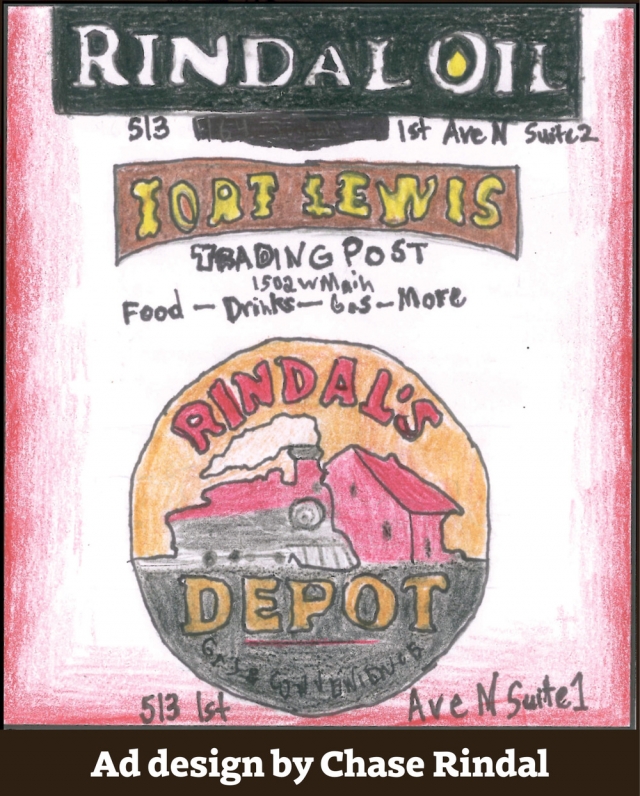 RINDAL OIL
513 1st Ave N Suite2
FORT LEWIS
TRADING POST
1502 W Main
Food - Drinks - Gas - More
RINDAL'S
DEPOT
GAS & CONVENIENCE
513 1st Ave N Suite1
Ad design by Chase Rindal